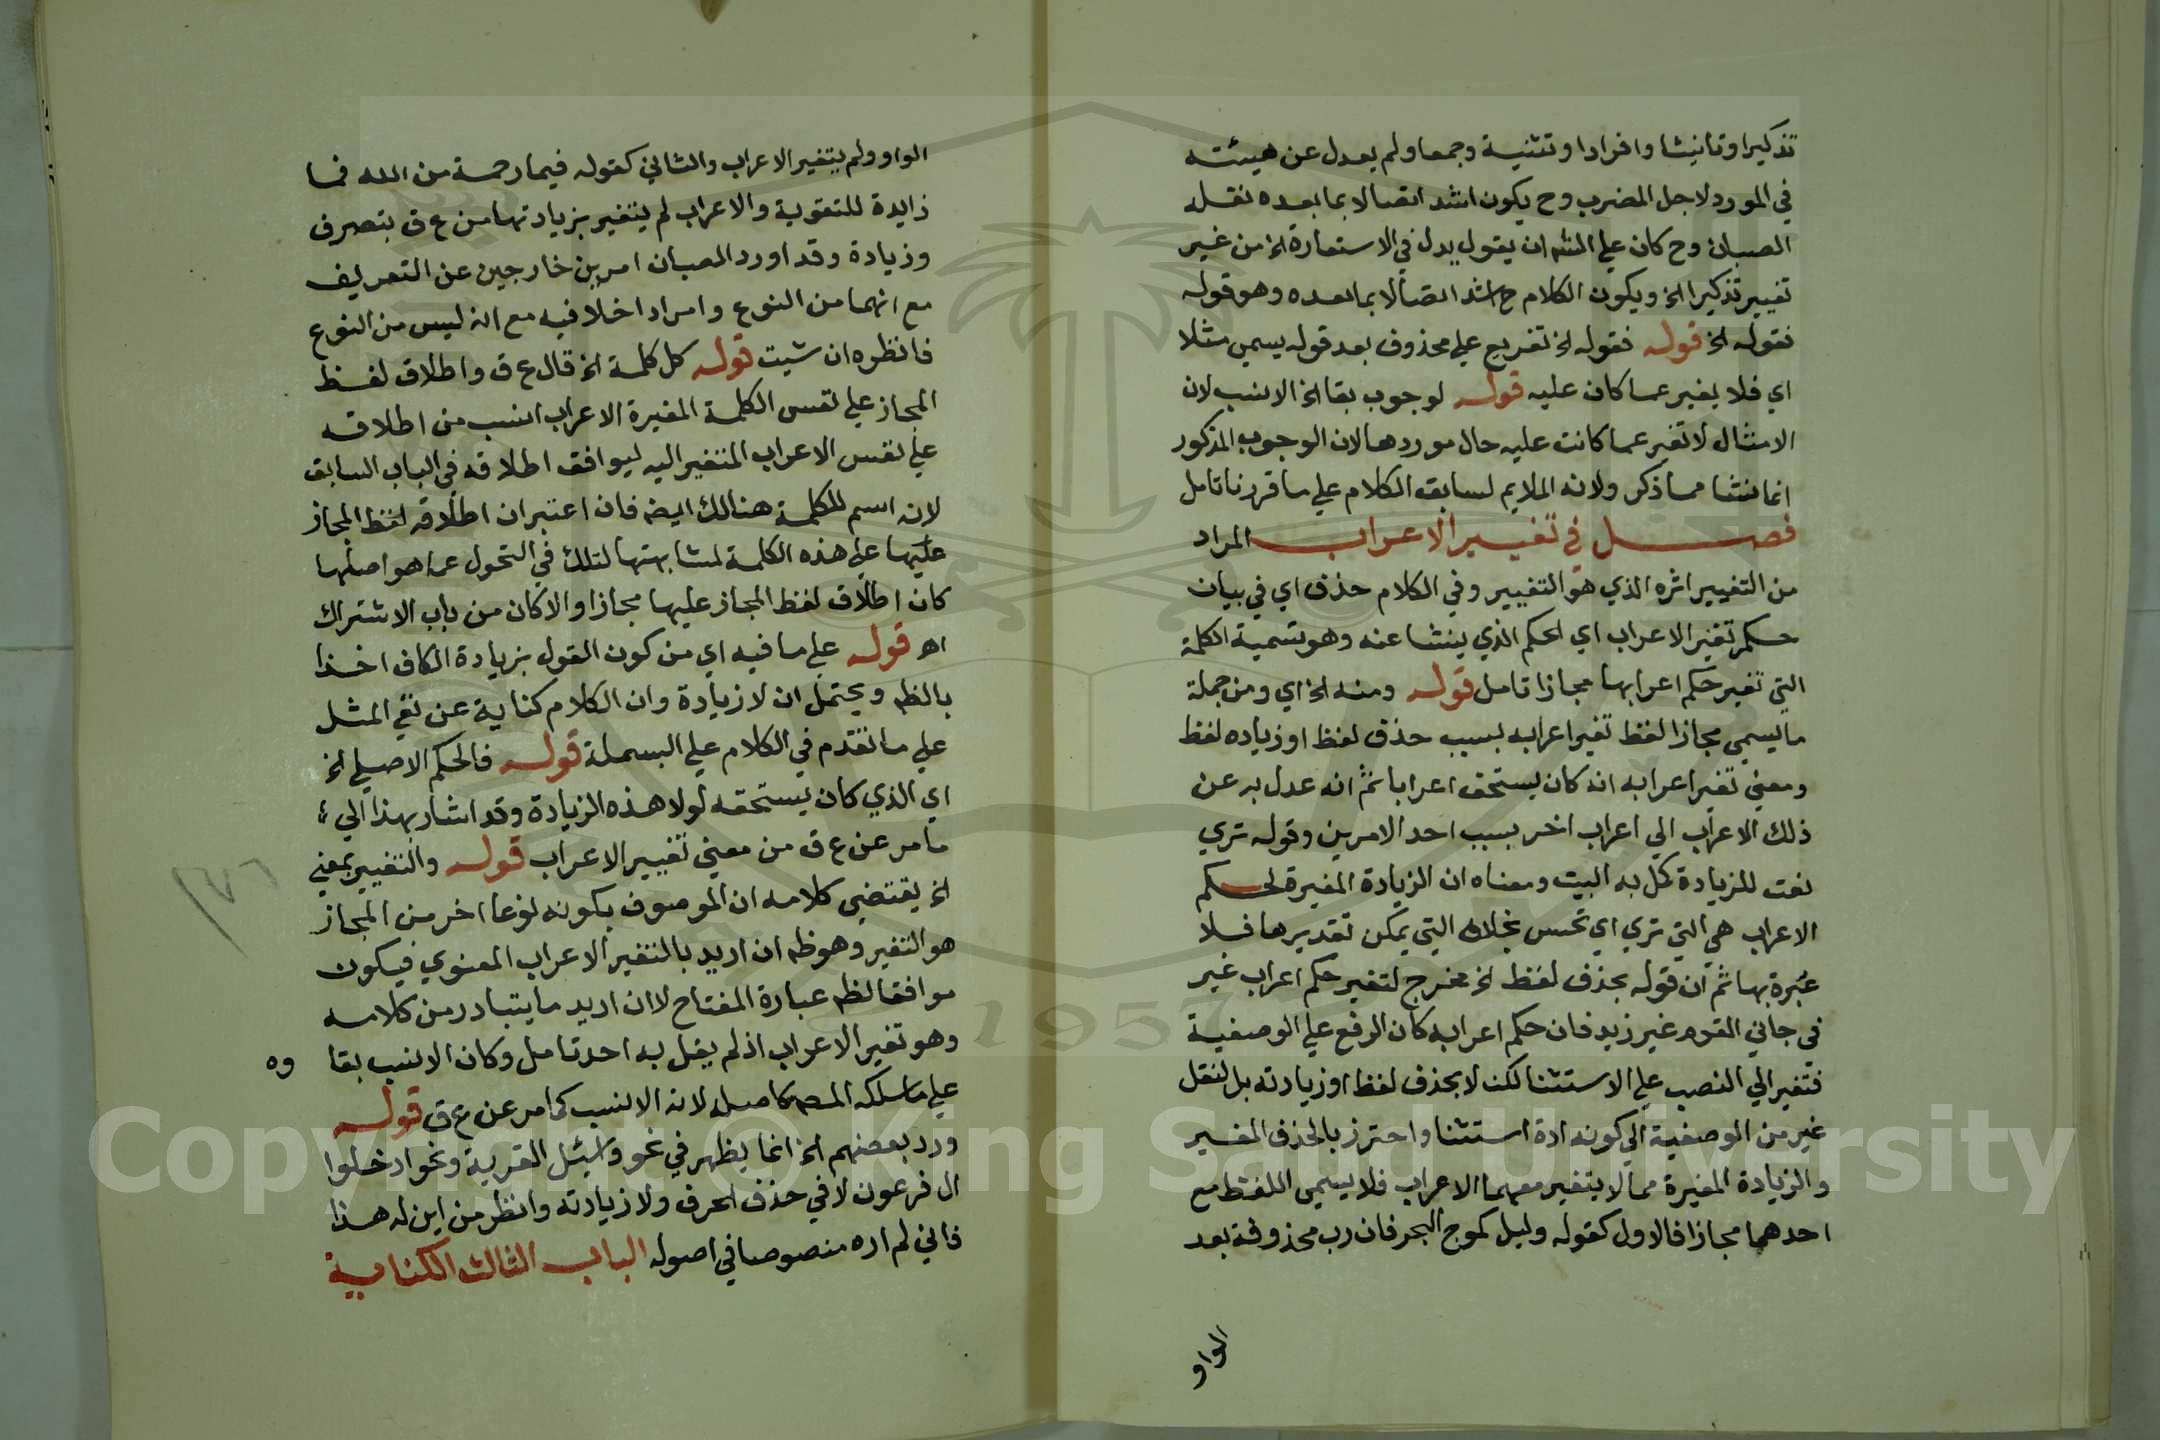 تذكيرا وتانيثا وافرادا وتثنية وجمعا ولم يعدل عن هيئته
في المورد لاجل المضرب وح يكون اشد اتصالا بما بعده نقله
الصبان وح كان علي الشه ان يقول يدل في الاستعارة الخ من غير
تغيير تذكيرا الخ ويكون الكلام ح اشد اتصالا بما بعده وهو قوله
نقوله الخ قوله فقوله الخ تفريع علي محذوف بعد قوله يسمي مثلا
اي فلا يغير عما كان عليه قوله لوجوب بقا الخ الانسب لان
الامثال لا تغير عما كانت عليه حال موردها لان الوجوب المذكور
انما نشا مما ذكر ولانه الملايم لسابق الكلام علي ما قررنا تامل
فصل في تغيير الاعراب المراد
من التغيير اثره الذي هو التغيير وفي الكلام حذف اي في بيان
حكم تغير الاعراب اي الحكم الذي ينشا عنه وهو تسمية الكلمة
التي تغير حكم اعرابها مجازا تامل قوله ومنه الخ اي ومن جملة
ما يسمي مجازا لفظ تغير اعرابه بسبب حذف لفظ او زياده لفظ
ومعني تغير اعرابه انه كان يستحق اعرابا ثم انه عدل به عن
ذلك الاعراب الي اعراب اخر بسبب احد الامرين وقوله تري
نعت للزيادة كل به البيت ومعناه ان الزيادة المغيرة لحكم
الاعراب هي التي تري اي تحس بخلاف التي يمكن تقديرها فلا
عبرة بها ثم ان قوله بحذف لفظ الخ مخرج لتغير حكم اعراب غير
في جاني القوم غير زيد فان حكم اعرابه كان الرفع علي الوصفية
فتغير الي النصب علي الاستثنا لكن لا بحذف لفظ او زيادته بل لنقل
غير من الوصفية الي كونه اداة استثنا واحترز بالحذف المغير
والزيادة المغيرة مما لا يتغير معهما الاعراب فلا يسمي اللفظ مع
احدهما مجازا فالاول كقوله وليل كموج البحر فان رب محذوفة بعد
الواو
الواو ولم يتغير الاعراب والثاني كقوله فيما رحمة من الله فما
زايدة للتقوية والاعراب لم يتغير بزيادتها من ع ق بتصرف
وزيادة وقد اورد الصبان امرين خارجين عن التعريف
مع انهما من النوع وامرا داخلا فيه مع انه ليس من النوع
فانظره ان شيت قوله كل كلمة الخ قال ع ق واطلاق لفظ
المجاز علي نفس الكلمة المغيرة الاعراب انسب من اطلاقه
علي نفس الاعراب المتغير اليه ليوافق اطلاقه في الباب السابق
لانه اسم للكلمة هنالك ايضه فان اعتبر ان اطلاقه لفظ المجاز
عليها علي هذه الكلمة لمشابهتها لتلك في التحول عما هو اصلها
كان اطلاق لفظ المجاز عليها مجازا والا كان من باب الاشتراك
اه قوله علي ما فيه اي من كون القول بزيادة الكاف اخذا
بالظه ويحتمل ان لا زيادة وان الكلام كناية عن نفي المثل
علي ما تقدم في الكلام علي البسملة قوله فالحكم الاصلي الخ
اي الذي كان يستحقه لولا هذه الزيادة وقد اشار بهذا الي
ما مر عن ع ق من معني تغيير الاعراب قوله والتغيير بمعني
الخ يقتضي كلامه ان الموصوف بكونه نوعا اخر من المجاز
هو التغير وهو ظه ان اريد بالتغير الاعراب المعنوي فيكون
موافقا لظه عبارة المفتاح لا ان اريد ما يتبادر من كلامه
وهو تغير الاعراب اذ لم يقل به احد تامل وكان الانسب بقا وه
علي ما سلكه المصه كاصله لانه الانسب كما مر عن ع ق قوله
ورد بعضهم الخ انما يظهر في نحو واسئل القرية ونحو ادخلوا
ال فرعون لا في حذف الحرف ولا زيادته وانظر من اين له هذا
فاني لم اره منصوصا في اصوله الباب الثالث الكناية
Copyright © King Saud University
1957